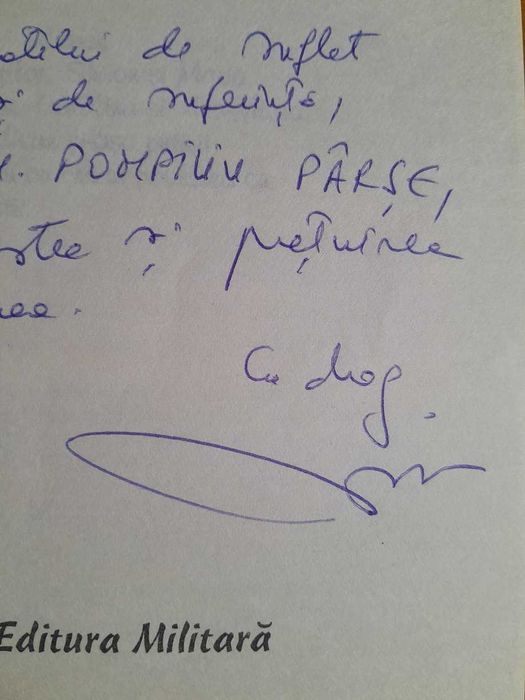 de suflet
și de suferință,
POMPILIU PÂRȘE,
și prețuirea
Cu drag.
Editura Militară